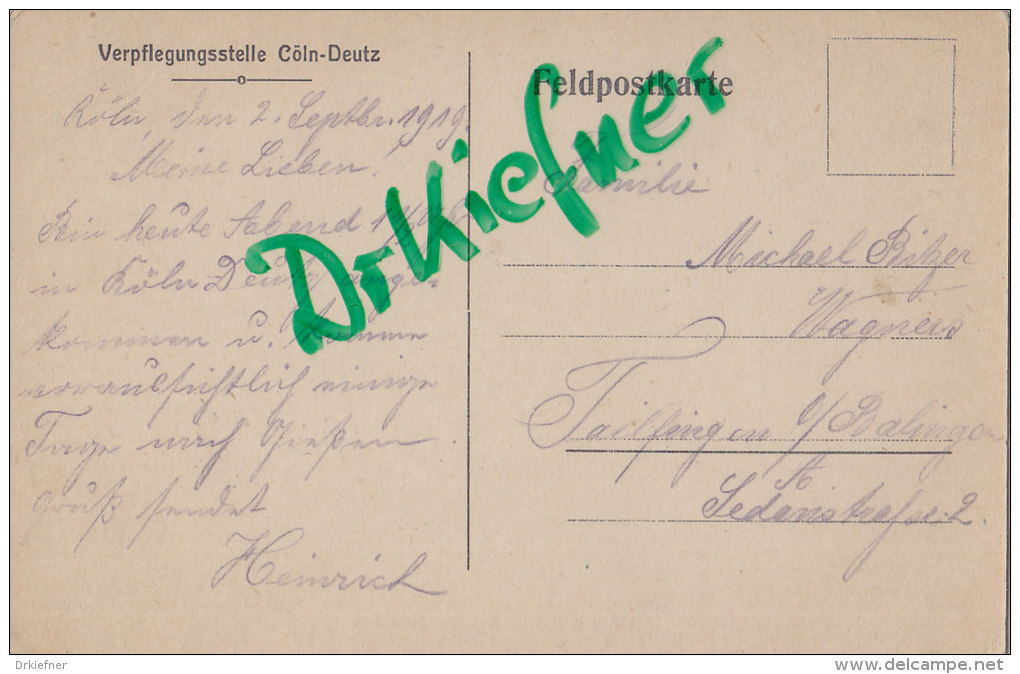 Verpflegungsstelle Cöln-Deutz
Köln, den 2. Septbr. 1919.
Meine Lieben!
Bin heute Abend
in Köln Deutz ange-
kommen u. komme
voraussichtlich einige
Tage nach Gießen.
Gruß sendet
Heinrich
Feldpostkarte
Familie
Michael Bitzer
Wagners
Tailfingen o/Balingen
Sedanstrasse 2.
Dr Kiefner
Drkiefner
www.delcampe.net